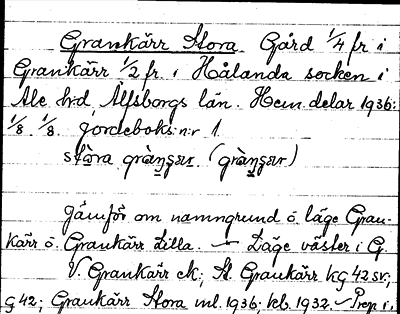 Grankärr Stora Gård 1/4 fr i
Grankärr 1/2 fr. i Hålanda socken i
Ale hd, Älfsborgs län. Hem. delar 1936:
1/8. 1/8. jordeboks:n:r 1.
stòra gràngar (gràngar)
Jämför om namngrund o. läge Gran-
kärr o. Grankärr Lilla. — Läge väster i G.
V. Grankärr ek.; St. Grankärr kg 42 sv;
G 42; Grankärr Stora ml. 1936; kb. 1932. – Prep i.